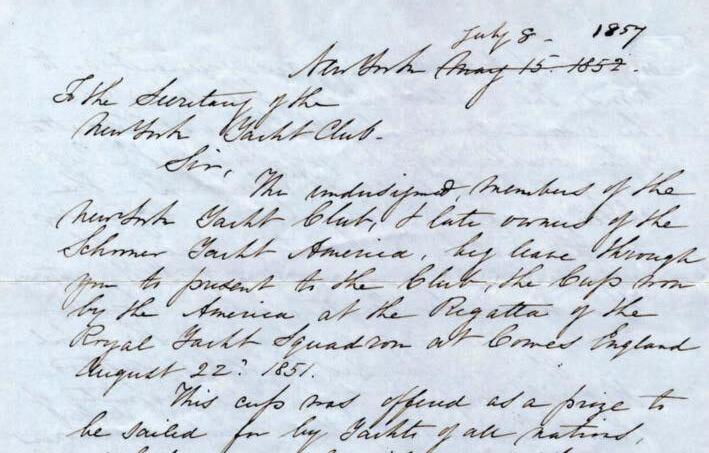 July 8 - 1857
New York May 15. 1852.
To the Secretary of the
New York Yacht Club.
Sir,
The undersigned, members of the
New York Yacht Club, & late owners of the
Schooner Yacht America, beg leave through
you to present to the Club, the Cup won
by the America at the Regatta of the
Royal Yacht Squadron at Cowes England
August 22d 1851.
This cup was offered as a prize to
be sailed for by Yachts of all nations,